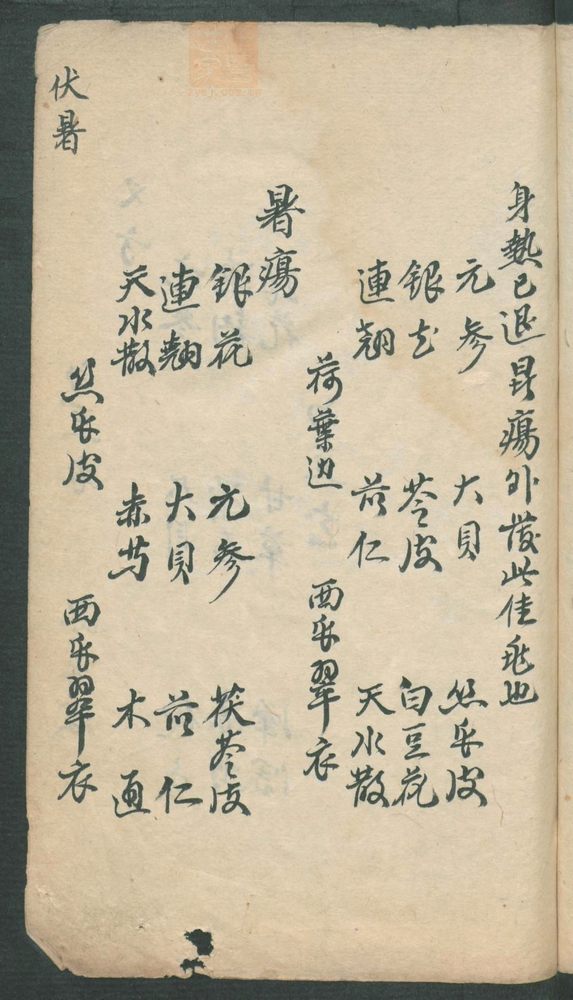 身熱已退暑瘍外發此佳兆也
元参 大貝 丝瓜皮
銀花 苓皮 白豆花
連翹 苡仁 天水散
荷葉边 西瓜翠衣
暑瘍
銀花 元参 茯苓皮
連翹 大貝 苡仁
天水散 赤芍 木通
丝瓜皮 西瓜翠衣
伏暑